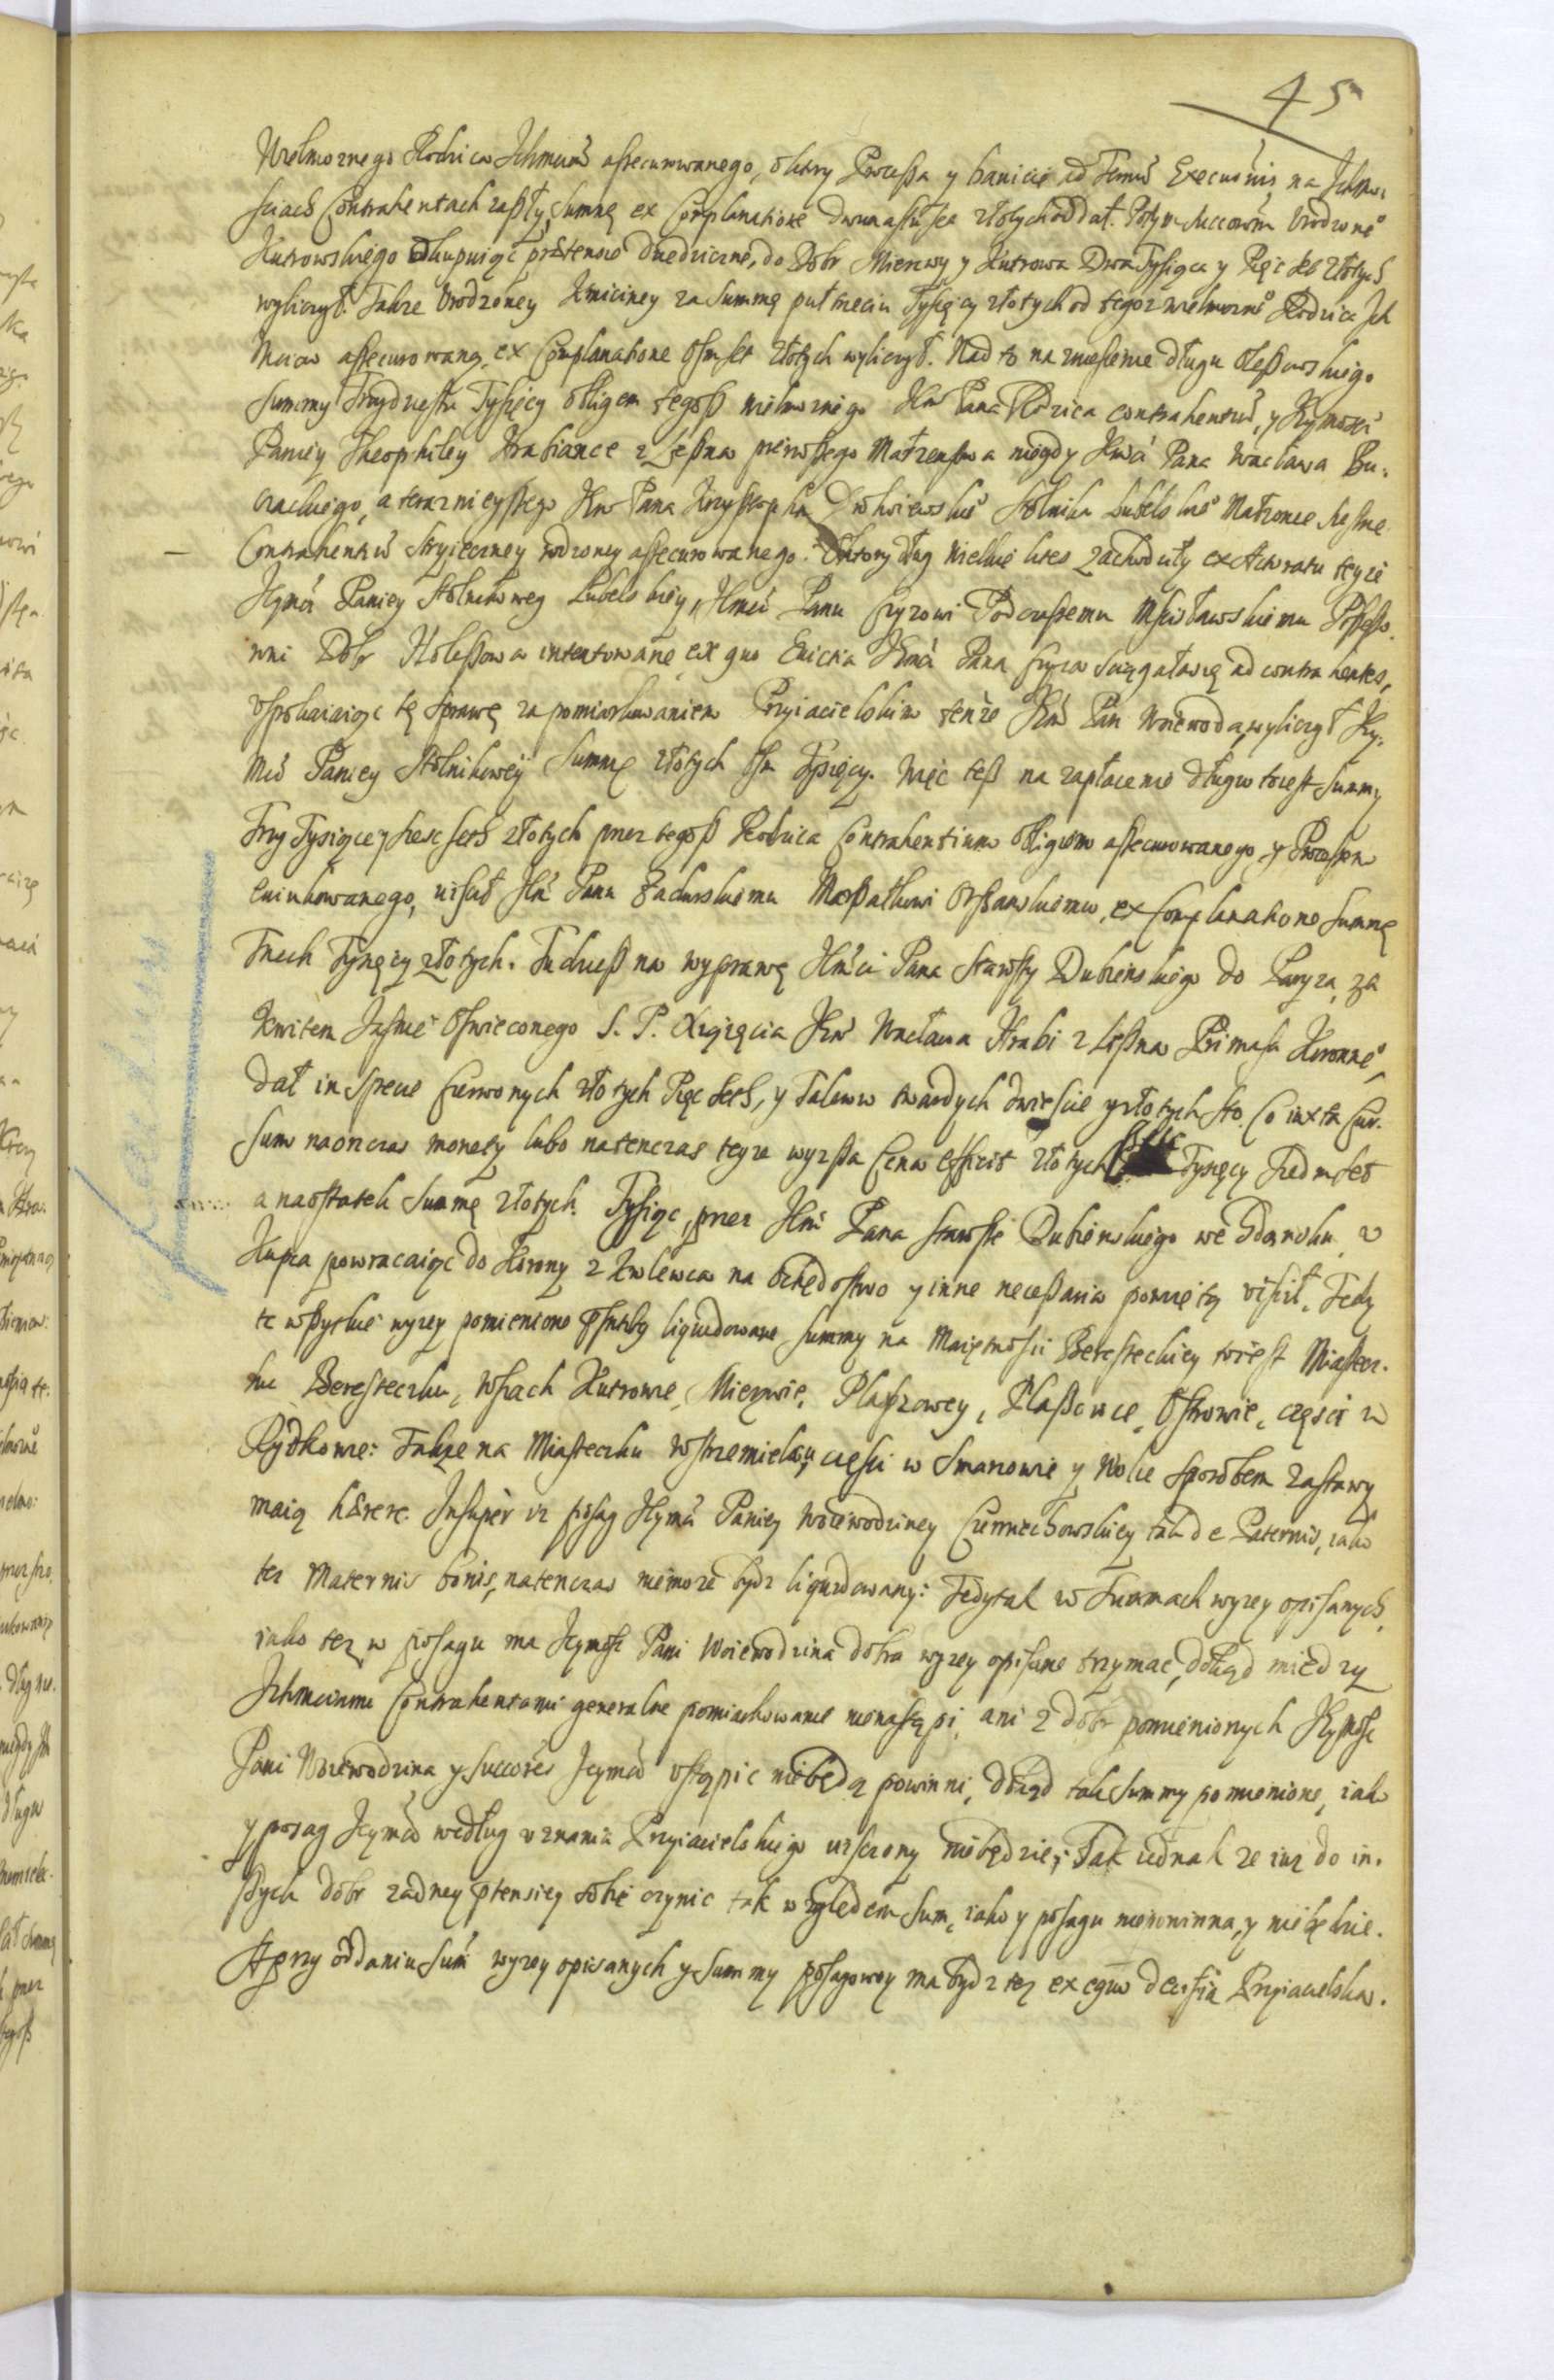 45
Wielmoznego Rodzica Ichmciów assecurowanego, o ktory Processa y banicie ad Terminũ Executionis na Ichmo-
sciach Contrahentach zaszły, Summę ex Complanatione dwunastu set złotych oddał. Potym Successorõ Vrodzonẽ
Kutrowskiego okupuiąc prætensie dziedziczne, do Dobr Mierzwy y Kutrowa Dwa Tysiąca y Pięc set złotych
wyliczył. Takze Vrodzoney Kmiciney za summę puł trzecia Tysięcy złotych od tegoz wielmoznẽ Rodzica Ich
Mciow assecurowaną, ex Complanatione Osmset złotych wyliczył. Nad to na zniesienie długu Olessowskiego
summy Trzydziestu Tysięcy obligiem tegoß wielmoznego Jmc Pana Rodzica contrahentiũ, y Jeymości
Paniey Theophiley Hrabiance z Leßna pierwßego Małzenstwa niegdy Jmci Pana Wacława Bu-
czackiego, a teraznieyßego Jmc Pana Krzysztopha Stolnika Lubelskiẽ Małzonce
Contrahentiũ stryieczney rodzoney assecurowanego. Ktory dług wielkie lites zachodziły ex Actoratu teyze
Jeymci Paniey Stolnikowey Lubelskiey, Jmci Panu Czyzowi Podczaszemu Mscisławskiemu Possesso-
rowi Dobr Holeßowa intentowane, ex quo Evictia Jmci Pana Czyza sciągała się ad contrahentes,
vspokaiaiąc tę sprawę za pomiarkowaniem Przyiacielskim tenze Jmc Pan Woiewoda, wyliczył Jey-
mci Paniey Stolnikowey Summę złotych Osm Tysięcy. Więc też na zapłacenie długu to iest summy
Trzy Tysiące y szesc set złotych przez tegoß Rodzica Contrahentium obligiem assecurowanego, y Processem
ewinkowanego, uiscił Jmc Panu Zadurskiemu Marszałkowi Orszanskiemu, ex Complanatione summę
Trzech Tysięcy złotych. Tudzieß na wyprawę Jmści Pana Starosty Dubienskiego do Paryza, za
Kwitem Jasnie Oswieconego S. P. Xiązęcia Jmc Wacława Hrabi z Leßna Primasa Koronnẽ,
dał in specie Czerwonych złotych Pięc set, y Talerow twardych dwiescie y złotych sto. Co iuxta Cur-
sum naonczas monety lubo natenczas teyze wyzßa Cena efficit złotych Tysięcy Siedmset
a naostatek summę złotych Tysiąc, przez Jmc Pana Starostę Dubienskiego we Gdansku, v
Kupca powracaiąc do Korony z Krolewca na ochędostwo y inne necessaria pomiętą viscił. Tedy
te wßystkie wyzey pomienione liquidowane summy na Maiętnosci Beresteckiey to iest Miastecz-
ku Beresteczku, wsiach Kutrowie, Mierzwie, Plaßzowey, Plaßowce, Ostrowie, części w
Rydkowie: Takze na Miasteczku Wstrzemielczu, części w Smarzowie y Wolce sposobem zastawy
maią hærere. Insuper iz posag Jeymci Paniey Woiewodziney Czerniechowskiey tak de Paternis, iako
tez Maternis bonis, natenczas niemoze bydz liquidowany: Tedy tak w Summach wyzey opisanych,
iako tez w posagu ma Jeymosc Pani Woiewodzina dobra wyzey opisane trzymac, dokąd miedzy
Ichmciami Contrahentami generalne pomiarkowanie nienastąpi, ani z dobr pomienionych Jeymosc
Pani Woiewodzina y Successores Jeymci vstąpic niebędą powinni, dokąd tak summy pomienione, iako
y posag Jeymci według vznania Przyiacielskiego uiszczony niebędzie; Tak iednak ze iuz do in-
ßych dobr zadney ptensiey sobie czynic tak względem sum, iako y posagu niepowinna, y niebędzie.
A przy oddaniu sum̃ wyzey opisanych y summy posagowey ma bydz tez ex æquo decisia Przyiacielska.